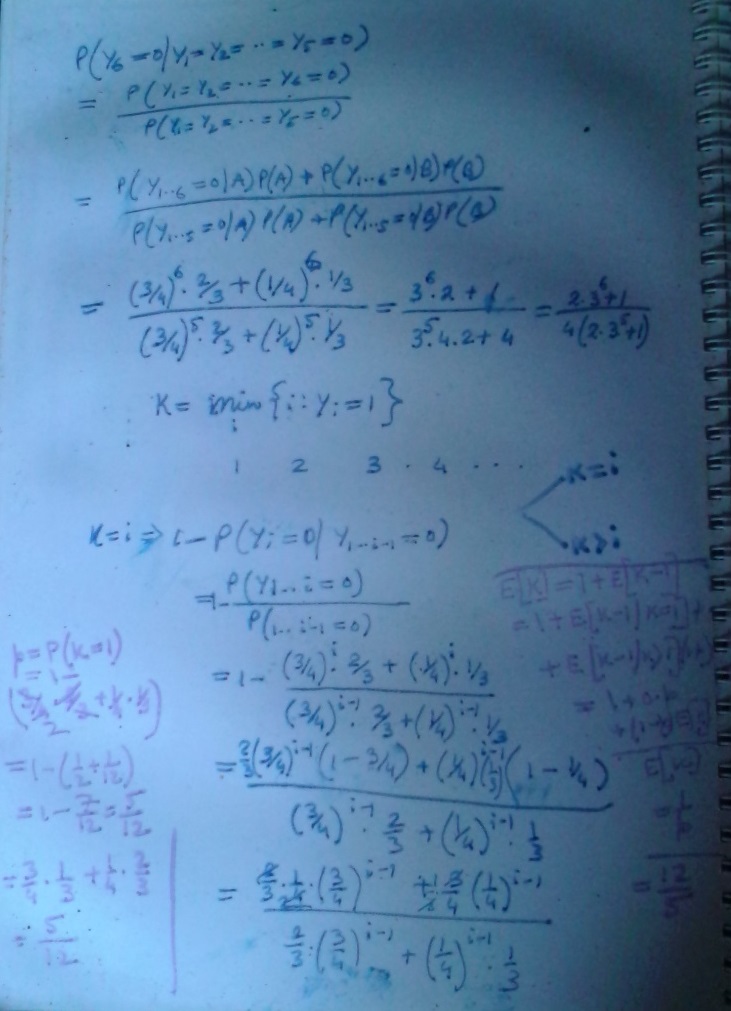 P(Y₆=0|Y₁=Y₂=··=Y₅=0)
= P(Y₁=Y₂=··=Y₆=0) / P(Y₁=Y₂=··=Y₅=0)
= P(Y₁..₆=0|A)P(A) + P(Y₁..₆=0|B)P(B) / P(Y₁..₅=0|A)P(A) + P(Y₁..₅=0|B)P(B)
= (3/4)⁶·2/3 + (1/4)⁶·1/3 / (3/4)⁵·2/3 + (1/4)⁵·1/3 = 3⁶·2+1 / 3⁵·4·2+4 = 2·3⁶+1 / 4(2·3⁵+1)
K = min{i: Yᵢ=1}
i
1 2 3 · 4 · · · ·
K=i
K>i
K=i ⇒ 1-P(Yᵢ=0|Y₁..ᵢ₋₁=0)
=1- P(Y₁..i=0) / P(1..i-1=0)
= 1- (3/4)ⁱ·2/3 + (1/4)ⁱ·1/3 / (3/4)ⁱ⁻¹·2/3 + (1/4)ⁱ⁻¹·1/3
= 2/3(3/4)ⁱ⁻¹(1-3/4) + (1/4)ⁱ⁻¹(1/3)(1-1/4) / (3/4)ⁱ⁻¹·2/3 + (1/4)ⁱ⁻¹·1/3
= (3/4)ⁱ⁻¹ + (1/4)ⁱ⁻¹ / 2/3·(3/4)ⁱ⁻¹ + (1/4)ⁱ⁻¹·1/3
p=P(K=1)
=1-
=1-(1/2+1/12)
=1-7/12=5/12
=3/4·1/3+1/4·2/3
=5/12
E[K]=1+E[K-1]
=1+E[K-1|K=1]+
+E[K-1|K>1]
=1·0+1
E[K]
=1/p
=12/5